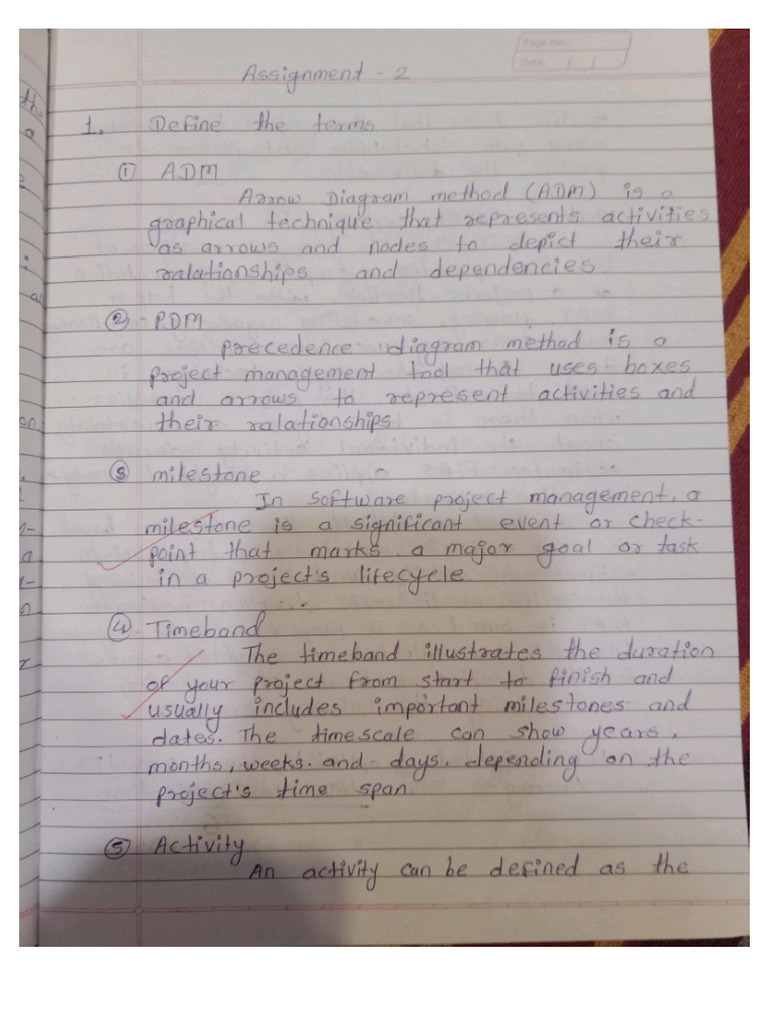 Page No.:
Date: / /
Assignment - 2
1. Define the terms
① ADM
Arrow Diagram method (ADM) is a
graphical technique that represents activities
as arrows and nodes to depict their
ralationships and dependencies
② PDM
precedence diagram method is a
project management tool that uses boxes
and arrows to represent activities and
their ralationships
③ milestone
In software project management, a
milestone is a significant event or check-
point that marks a major goal or task
in a project's lifecycle.
④ Timeband
The timeband illustrates the duration
of your project from start to finish and
usually includes important milestones and
dates. The timescale can show years,
months, weeks. and days, depending on the
project's time span.
⑤ Activity
An activity can be defined as the